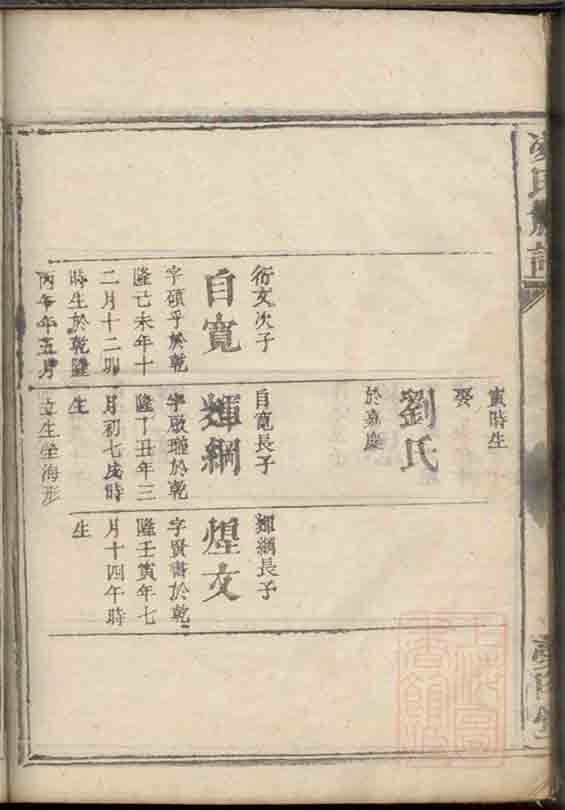 寅時生
娶
劉氏
於嘉慶
衍文次子
自寬
字碩乎於乾
隆己未年十
二月十二卯
時生於乾隆
丙午年五月
自寬長子
輝綱
字啟瓘於乾
隆丁丑年三
月初七戌時
生
立生坐海形
輝綱長子
煋文
字賢書於乾
隆壬寅年七
月十四午時
生